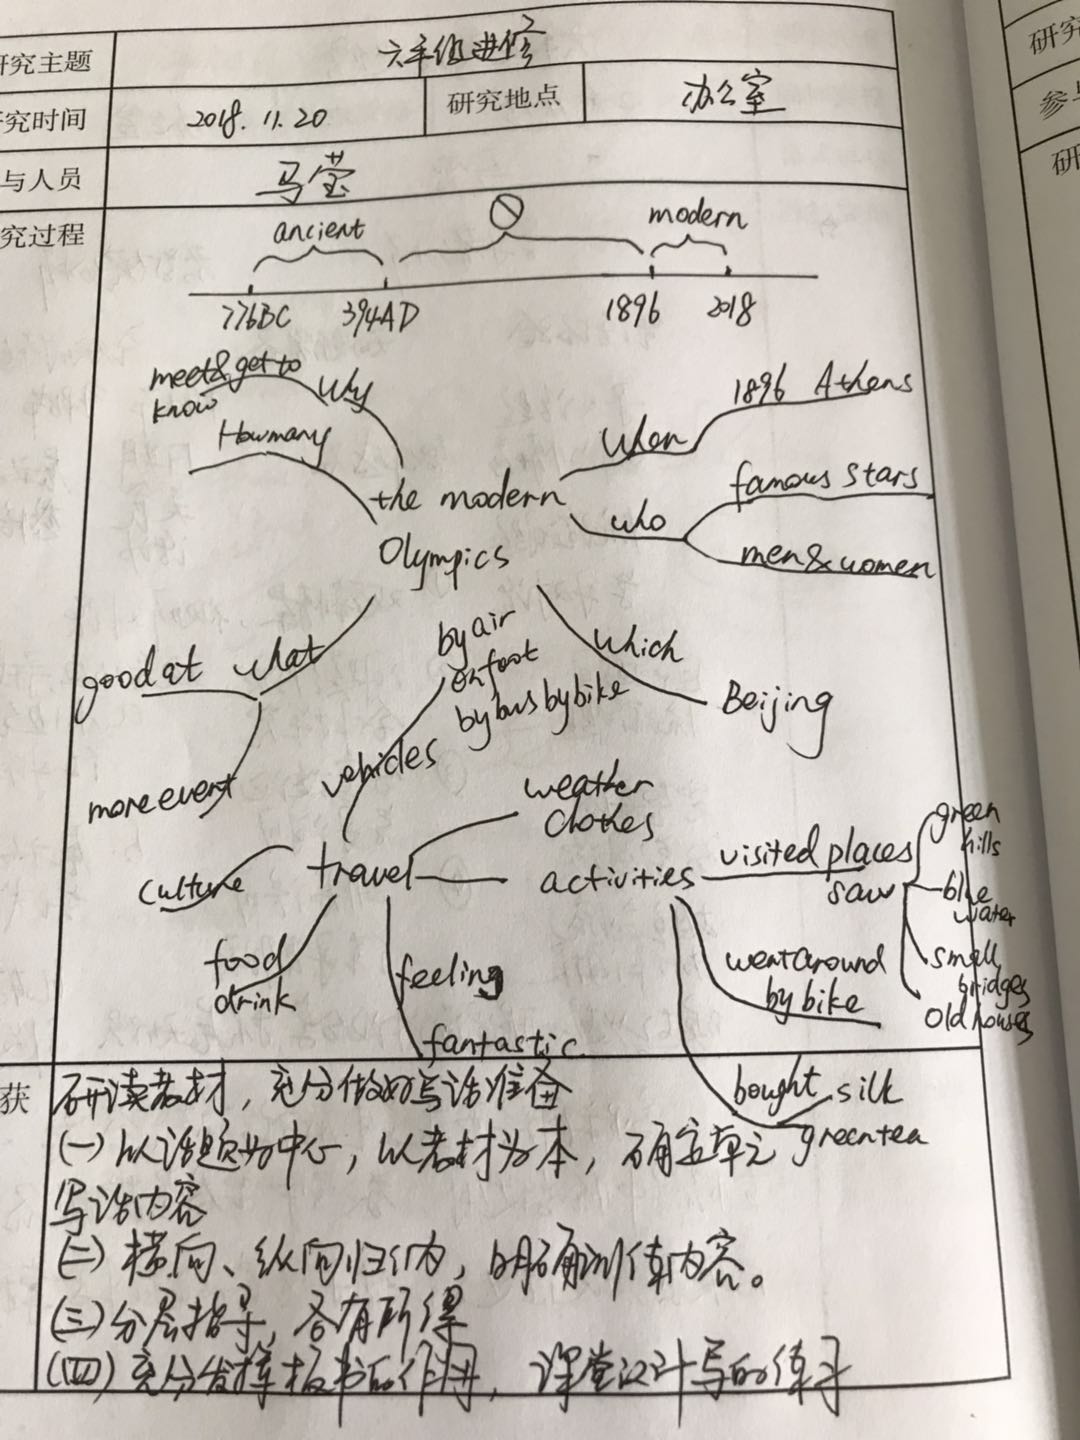 研究主题 六年级进修
究时间 2018.11.20 研究地点 办公室
与人员 马莹
究过程
ancient modern
776BC 394AD 1896 2018
meet&get to
know
Why
How many
the modern
Olympics
when 1896 Athens
who famous stars
men&women
which Beijing
good at what
more event
by air
on foot
by bus by bike
vehicles
weather
clothes
travel
culture
food
drink
feeling
fantastic
activities
visited places
saw
green
hills
blue
water
small
bridges
old houses
went around
by bike
bought silk
green tea
获
研读教材，充分做好写话准备
(一)以话题为中心，以教材为本，确定单元
写话内容
(二)横向、纵向归纳，明确训练内容。
(三)分层指导，各有所得
(四)充分发挥板书的作用，课堂设计写的练习
研究
参与
研